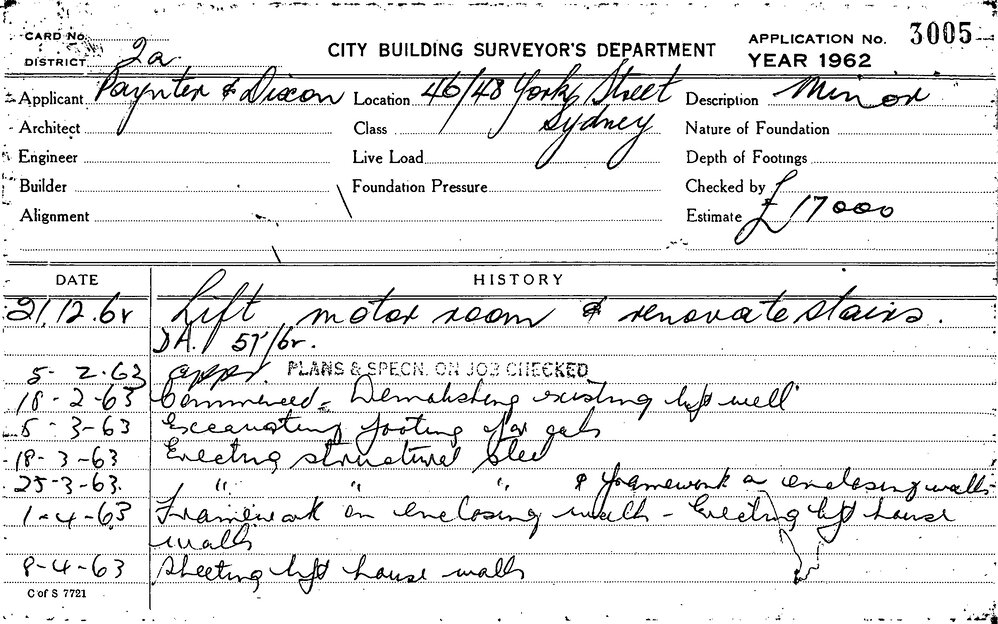 CARD No.
DISTRICT 2a
CITY BUILDING SURVEYOR'S DEPARTMENT
APPLICATION No. 3005
YEAR 1962
Applicant Paynter & Dixon Location 46/48 York Street Description Minor
Sydney
Architect Class Nature of Foundation
Engineer Live Load Depth of Footings
Builder Foundation Pressure Checked by
Alignment Estimate £17000
DATE HISTORY
21.12.62 Lift motor room & renovate stairs.
DA. /62.
5-2-63 appr. PLANS & SPECN. ON JOB CHECKED
18-2-63 Commenced - Demolishing existing lift well
5-3-63 Excavating footing for
18-3-63 Erecting structural steel
25-3-63. " " " & framework on enclosing walls
1-4-63 Framework on enclosing walls - Erecting lift house
walls
8-4-63 Sheeting lift house walls
C of S 7721